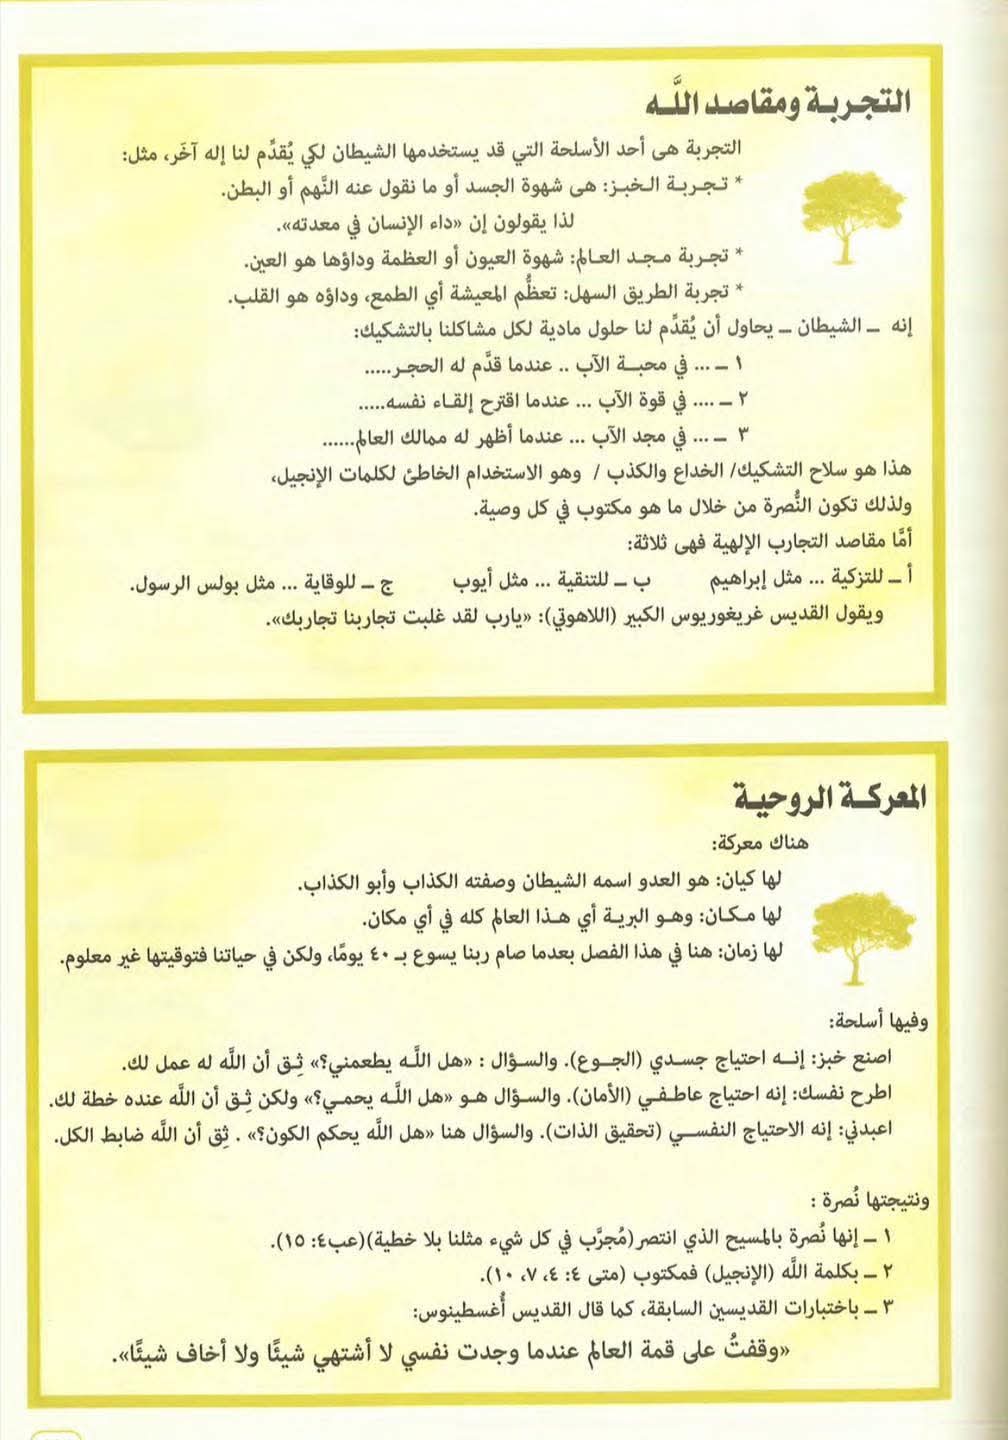 التجربة ومقاصد اللَّه
التجربة هى أحد الأسلحة التي قد يستخدمها الشيطان لكي يُقدِّم لنا إله آخَر، مثل:
* تجربة الخبز: هى شهوة الجسد أو ما نقول عنه النَّهم أو البطن.
لذا يقولون إن «داء الإنسان في معدته».
* تجربة مجد العالم: شهوة العيون أو العظمة وداؤها هو العين.
* تجربة الطريق السهل: تعظُّم المعيشة أي الطمع، وداؤه هو القلب.
إنه ـ الشيطان ـ يحاول أن يُقدِّم لنا حلول مادية لكل مشاكلنا بالتشكيك:
١ ـ ... في محبة الآب .. عندما قدَّم له الحجر.....
٢ ـ .... في قوة الآب ... عندما اقترح إلقاء نفسه.....
٣ ـ ... في مجد الآب ... عندما أظهر له ممالك العالم......
هذا هو سلاح التشكيك/ الخداع والكذب / وهو الاستخدام الخاطئ لكلمات الإنجيل،
ولذلك تكون النُّصرة من خلال ما هو مكتوب في كل وصية.
أمَّا مقاصد التجارب الإلهية فهى ثلاثة:
أ ـ للتزكية ... مثل إبراهيم ب ـ للتنقية ... مثل أيوب ج ـ للوقاية ... مثل بولس الرسول.
ويقول القديس غريغوريوس الكبير (اللاهوتي): «يارب لقد غلبت تجاربنا تجاربك».
المعركة الروحية
هناك معركة:
لها كيان: هو العدو اسمه الشيطان وصفته الكذاب وأبو الكذاب.
لها مكان: وهو البرية أي هذا العالم كله في أي مكان.
لها زمان: هنا في هذا الفصل بعدما صام ربنا يسوع بـ ٤٠ يومًا، ولكن في حياتنا فتوقيتها غير معلوم.
وفيها أسلحة:
اصنع خبز: إنه احتياج جسدي (الجوع). والسؤال : «هل اللَّه يطعمني؟» ثِق أن اللَّه له عمل لك.
اطرح نفسك: إنه احتياج عاطفي (الأمان). والسؤال هو «هل اللَّه يحمي؟» ولكن ثِق أن اللَّه عنده خطة لك.
اعبدني: إنه الاحتياج النفسي (تحقيق الذات). والسؤال هنا «هل اللَّه يحكم الكون؟» . ثِق أن اللَّه ضابط الكل.
ونتيجتها نُصرة :
١ ـ إنها نُصرة بالمسيح الذي انتصر (مُجرَّب في كل شيء مثلنا بلا خطية)(عب٤: ١٥).
٢ ـ بكلمة اللَّه (الإنجيل) فمكتوب (متى ٤: ٤، ٧، ١٠).
٣ ـ باختبارات القديسين السابقة، كما قال القديس أُغسطينوس:
«وقفتُ على قمة العالم عندما وجدت نفسي لا أشتهي شيئًا ولا أخاف شيئًا».